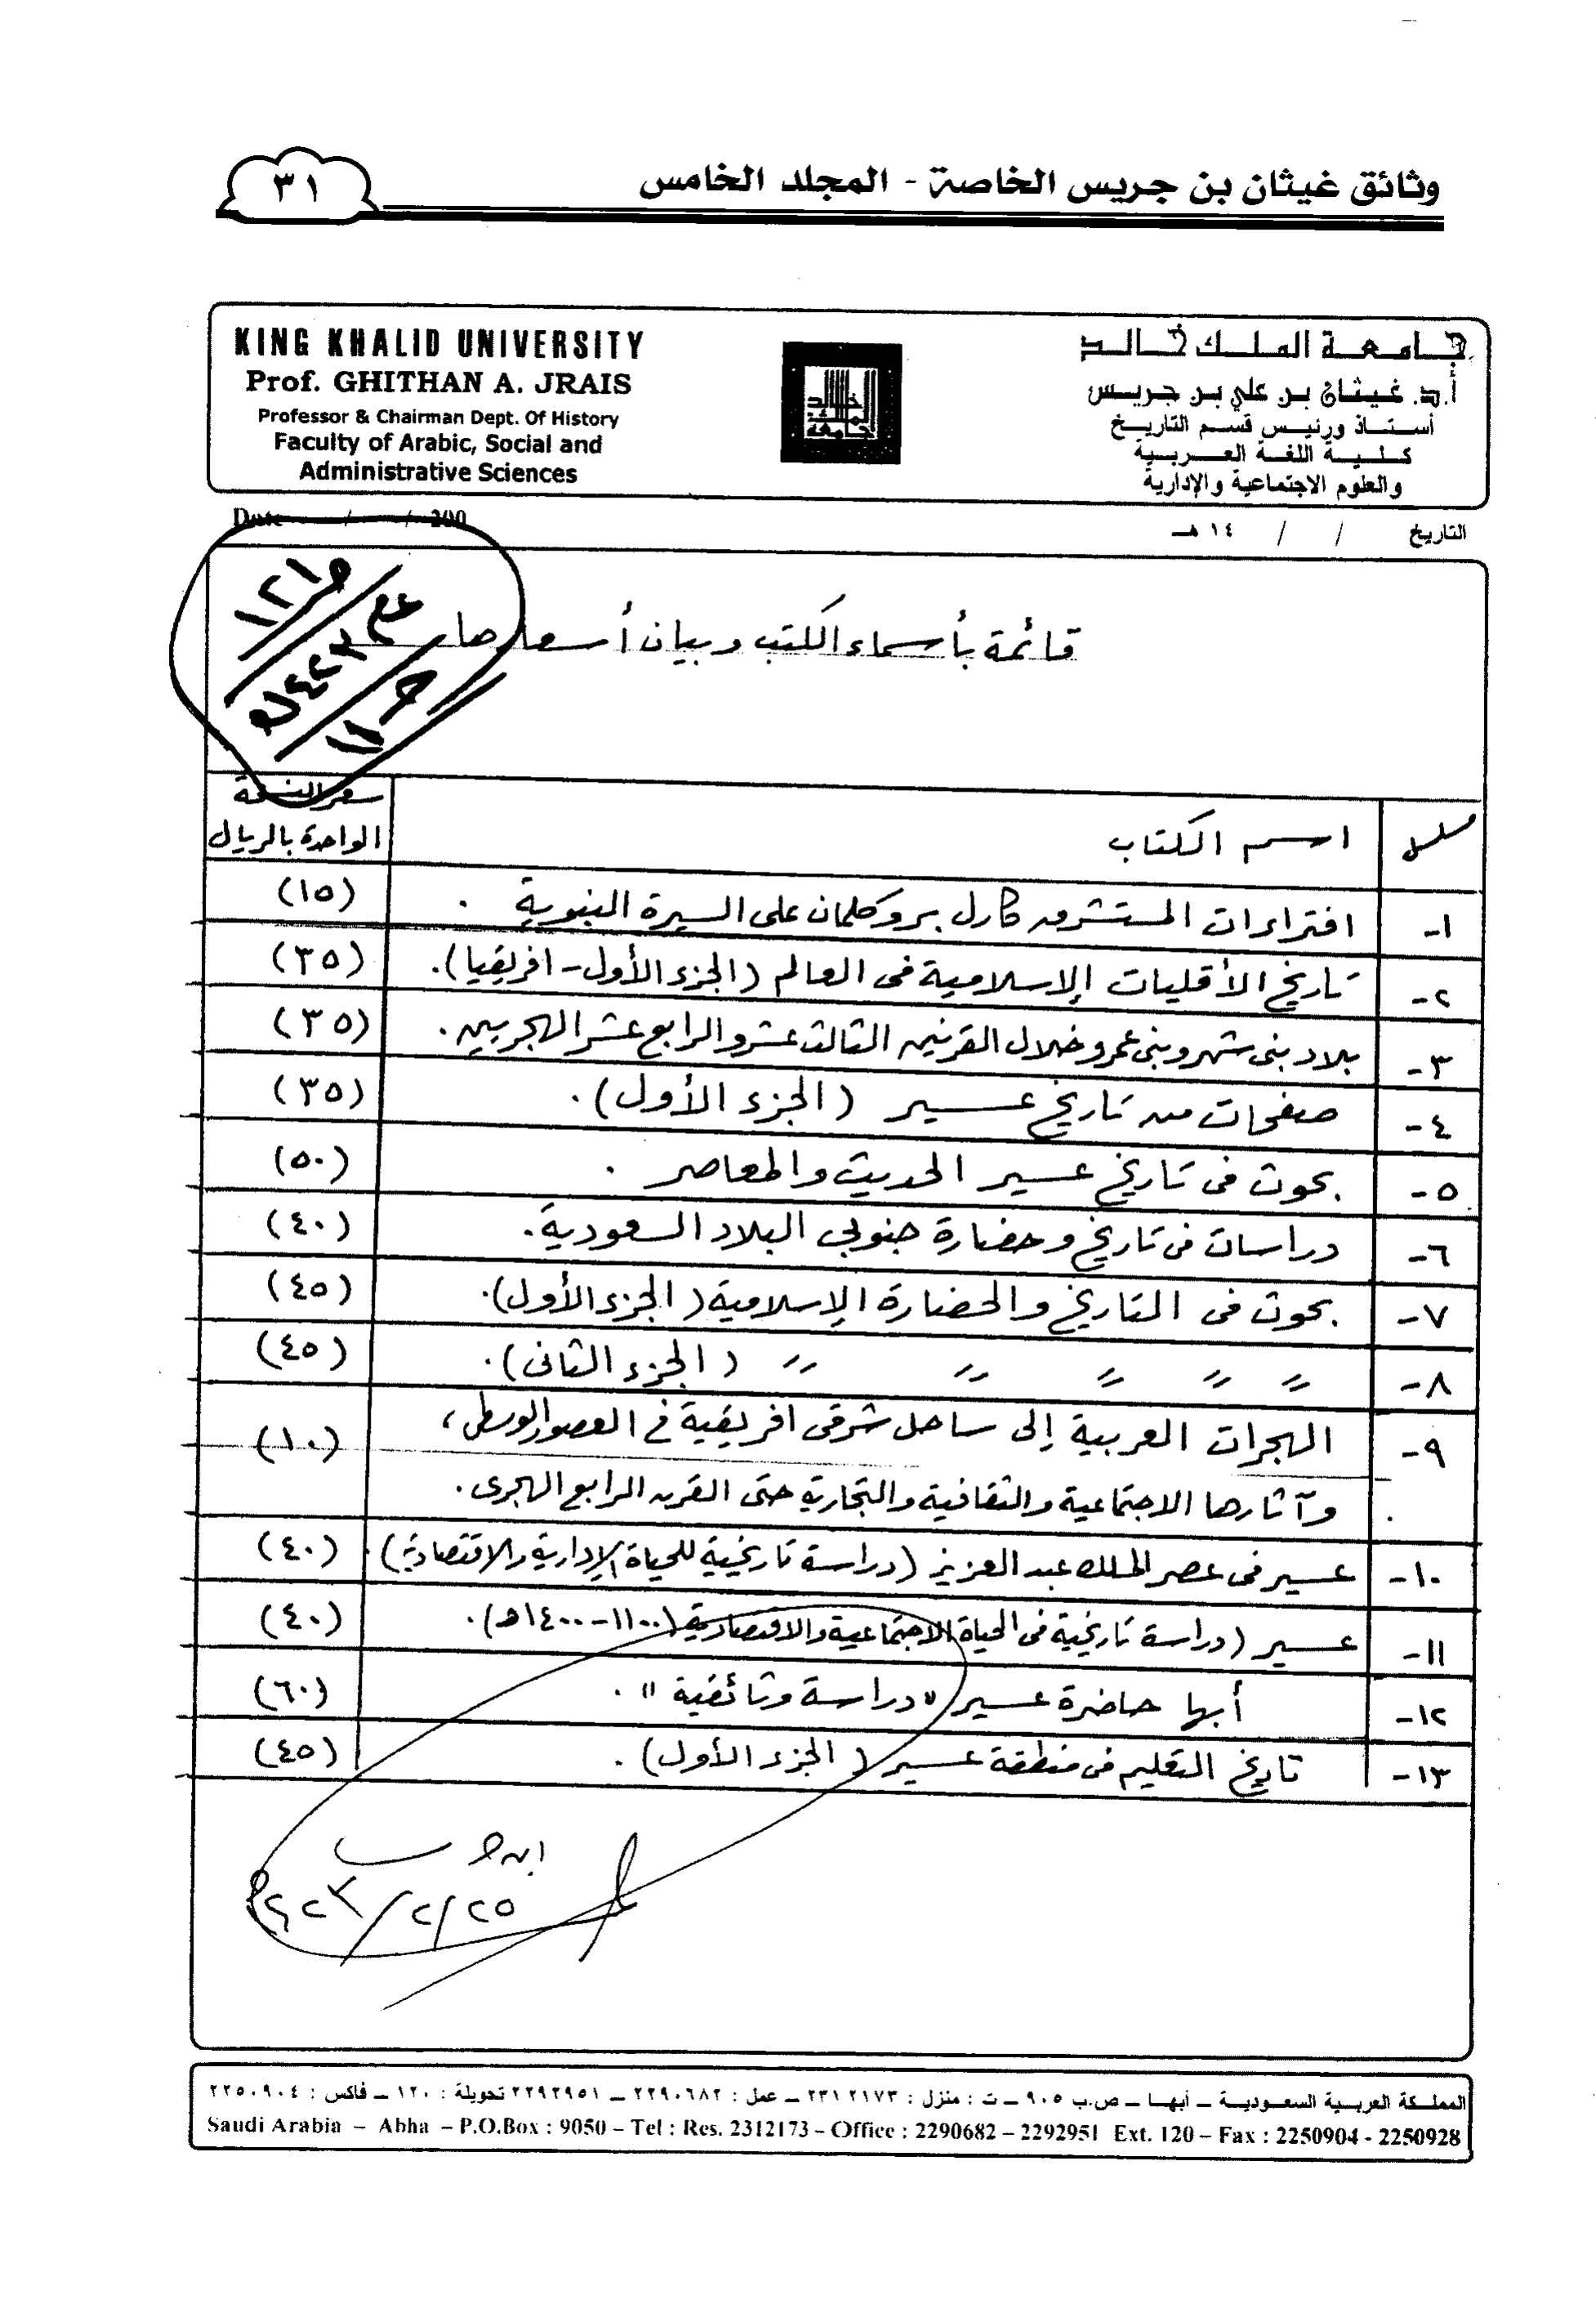 وثائق غيثان بن جريس الخاصة - المجلد الخامس
٣١
KING KHALID UNIVERSITY
Prof. GHITHAN A. JRAIS
Professor & Chairman Dept. Of History
Faculty of Arabic, Social and
Administrative Sciences
جامعة الملك خالد
أ.د. غيثان بن علي بن جريس
أستاذ ورئيس قسم التاريخ
كلية اللغة العربية
والعلوم الاجتماعية والإدارية
Date / / 200
التاريخ / / ١٤هـ
قائمة بأسماء الكتب وبيان أسعارها
مسلسل اسم الكتاب سعر النسخة
الواحدة بالريال
١- افتراءات المستشرق كارل بروكلمان على السيرة النبوية . (١٥)
٢- تاريخ الأقليات الإسلامية في العالم (الجزء الأول - افريقيا). (٣٥)
٣- بلاد بني شهر وبني عمرو خلال القرنين الثالث عشر والرابع عشر الهجريين. (٣٥)
٤- صفحات من تاريخ عسير (الجزء الأول). (٣٥)
٥- بحوث في تاريخ عسير الحديث والمعاصر . (٥٠)
٦- دراسات في تاريخ وحضارة جنوبي البلاد السعودية. (٤٠)
٧- بحوث في التاريخ والحضارة الإسلامية (الجزء الأول). (٤٥)
٨-〃 〃 〃 〃 〃 (الجزء الثاني). (٤٥)
٩- الهجرات العربية إلى ساحل شرقي افريقية في العصور الوسطى، (١٠)
وآثارها الاجتماعية والثقافية والتجارية حتى القرن الرابع الهجري.
١٠- عسير في عصر الملك عبد العزيز (دراسة تاريخية للحياة الإدارية والاقتصادية). (٤٠)
١١- عسير (دراسة تاريخية في الحياة الاجتماعية والاقتصادية (١١٠٠-١٤٠٠هـ). (٤٠)
١٢- أبها حاضرة عسير "دراسة وثائقية". (٦٠)
١٣- تاريخ التعليم في منطقة عسير (الجزء الأول). (٤٥)
المملكة العربية السعودية - أبها - ص.ب ٩٠٥ - ت : منزل : ٢٣١٢١٧٣ - عمل : ٢٢٩٠٦٨٢ - ٢٢٩٢٩٥١ تحويلة : ١٢٠ - فاكس : ٢٢٥٠٩٠٤
Saudi Arabia – Abha – P.O.Box : 9050 – Tel : Res. 2312173 – Office : 2290682 – 2292951 Ext. 120 – Fax : 2250904 - 2250928